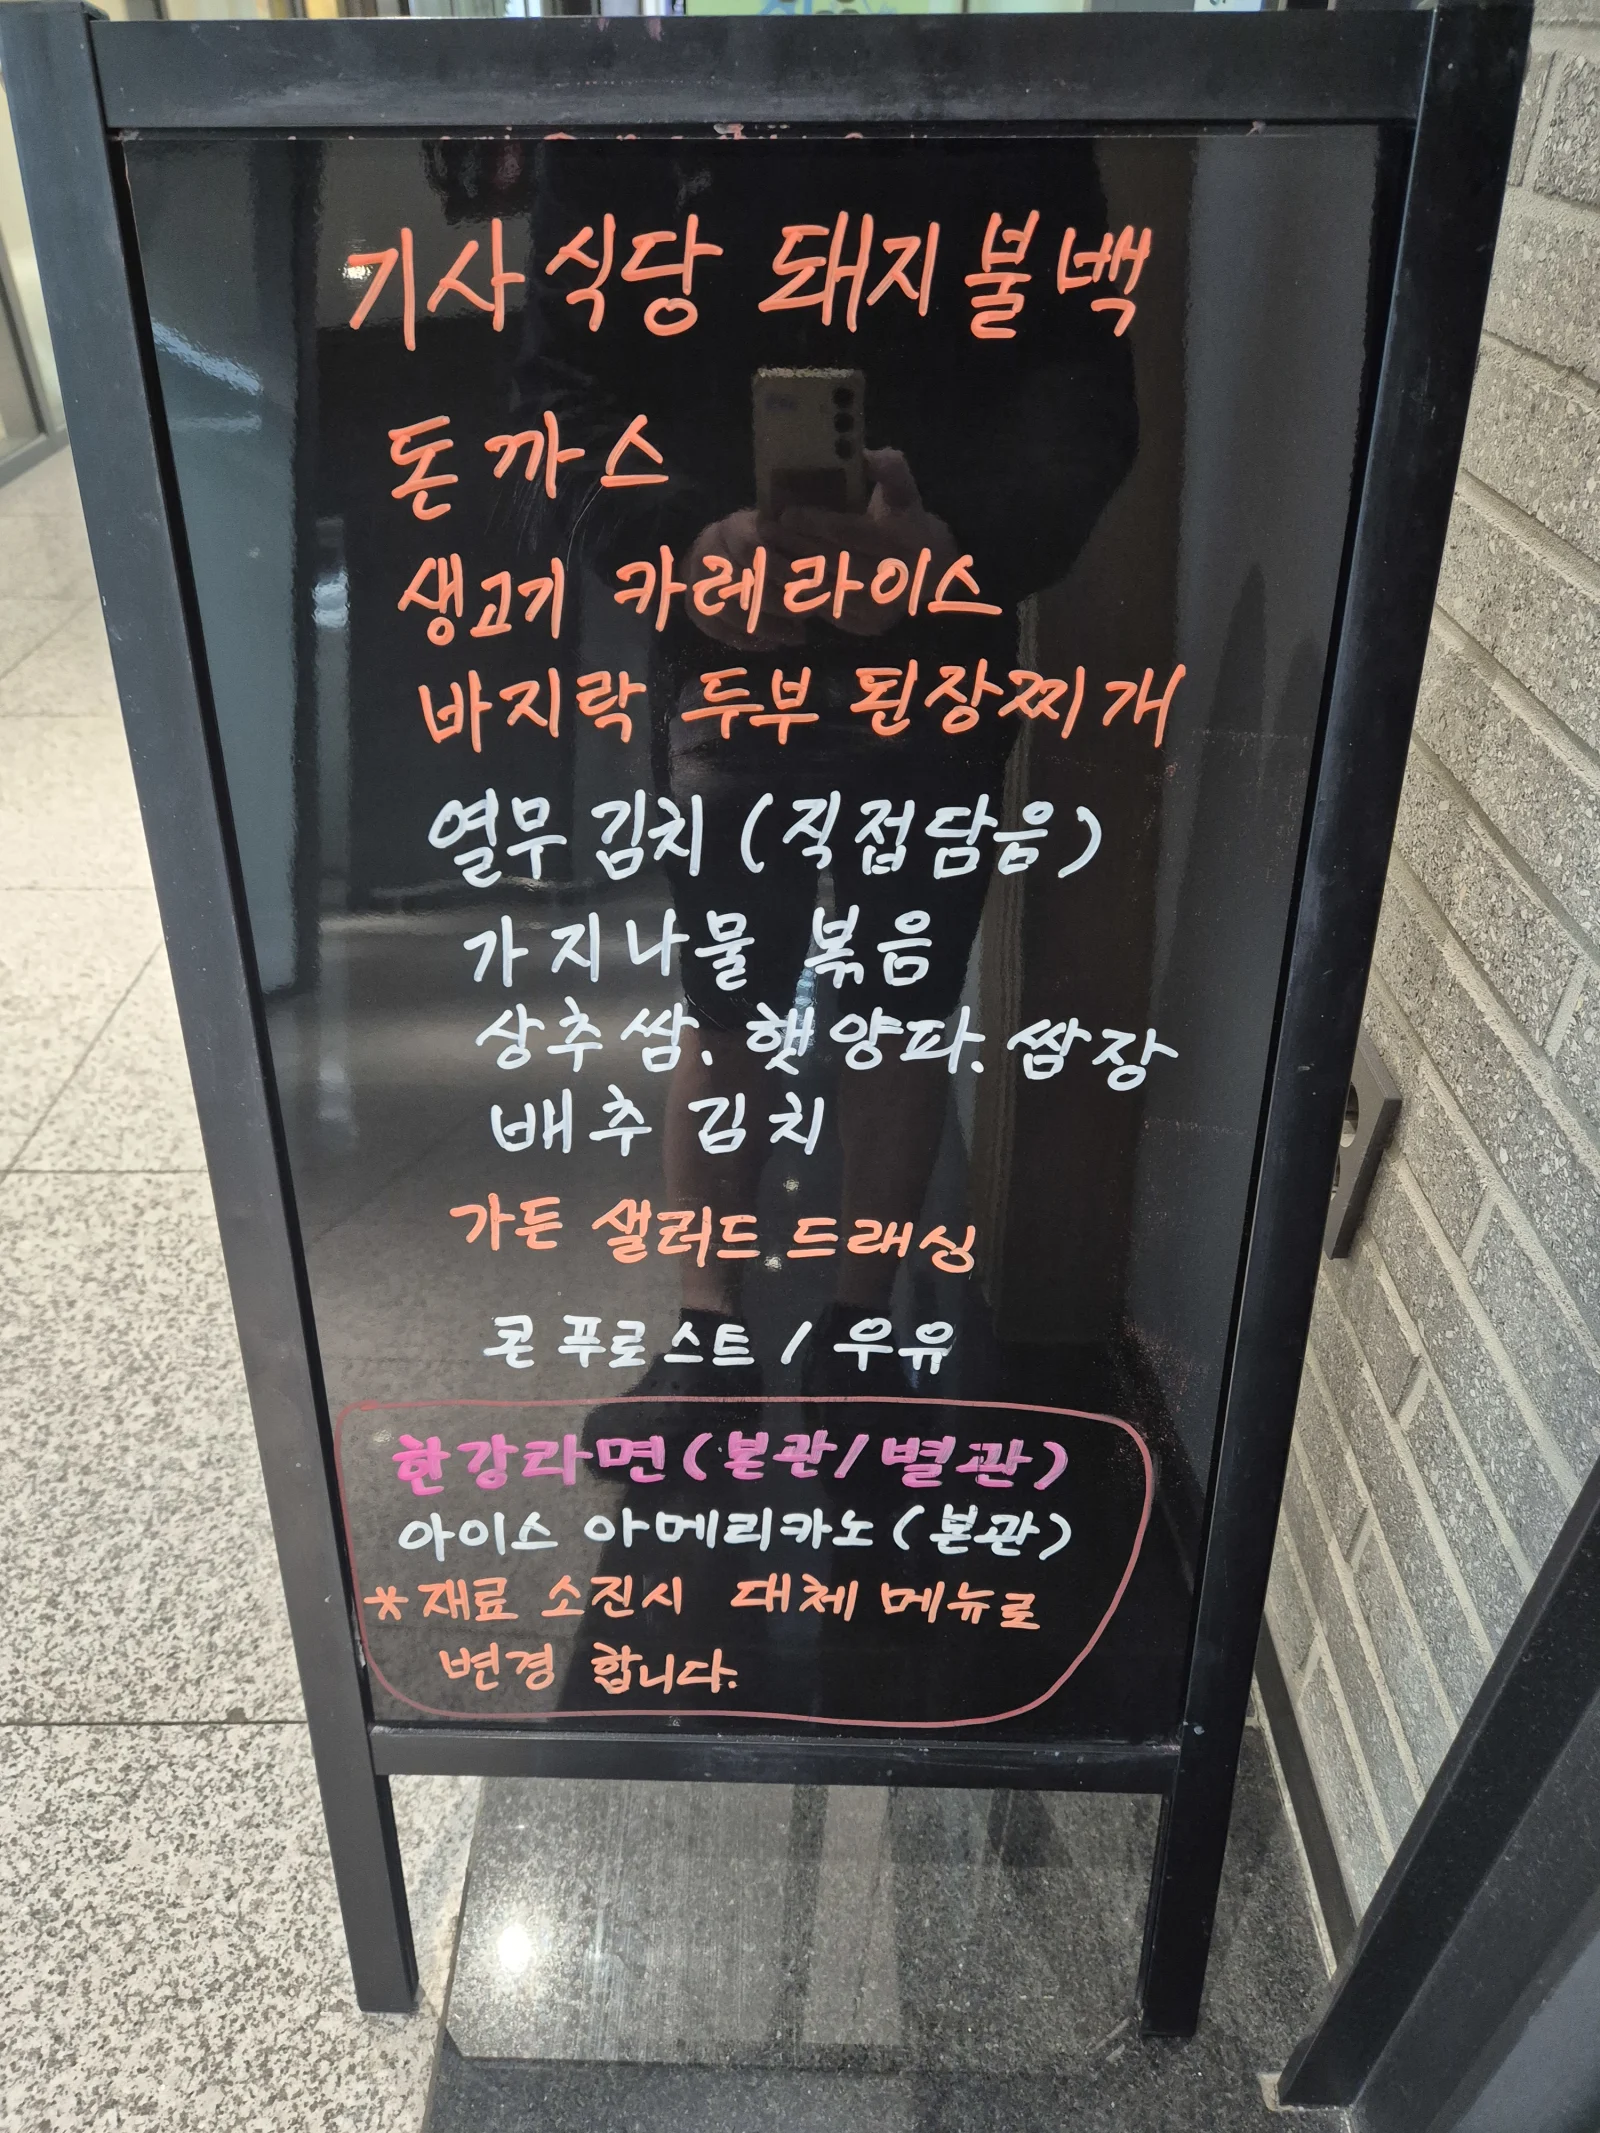 기사식당 돼지불백
돈까스
생고기 카레라이스
바지락 두부 된장찌개
열무김치 (직접담음)
가지나물 볶음
상추쌈. 햇양파. 쌈장
배추김치
가든 샐러드 드래싱
콘푸로스트 / 우유
한강라면 (본관/별관)
아이스 아메리카노 (본관)
* 재료 소진시 대체 메뉴로
변경 합니다.